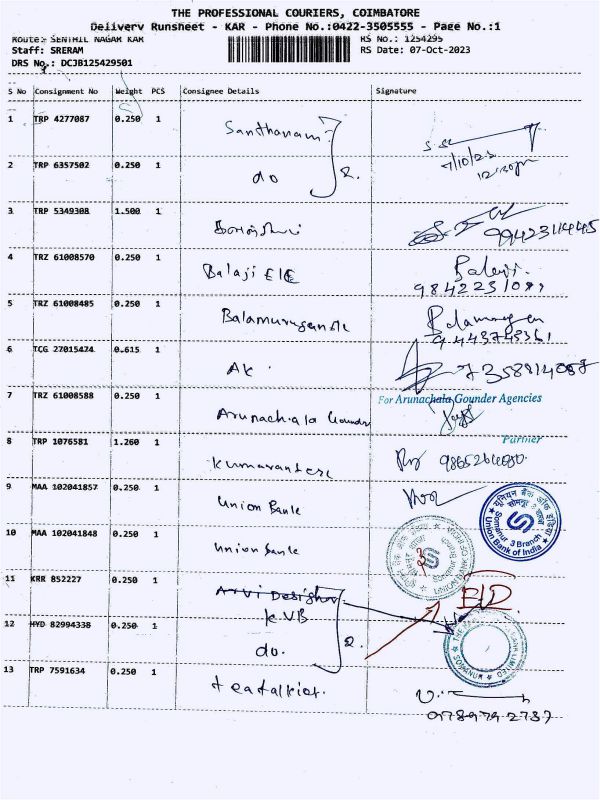 THE PROFESSIONAL COURIERS, COIMBATORE
Delivery Runsheet - KAR - Phone No.:0422-3505555 - Page No.:1
Route: SENTHIL NAGAR KAR
RS No.: 1254295
Staff: SRERAM
RS Date: 07-Oct-2023
DRS No.: DCJB125429501
S No Consignment No Weight PCS Consignee Details Signature
1 TRP 4277087 0.250 1 Santhanam
7/10/23
12:30pm
2 TRP 6357502 0.250 1 do 2.
3 TRP 5349308 1.500 1
4 TRZ 61008570 0.250 1 Balaji EIE Balaji
9842231091
5 TRZ 61008485 0.250 1 Balamurugan Balamurugan
9443743361
6 TCG 27015424 0.615 1 AK
7358914087
7 TRZ 61008588 0.250 1 Arunachala Gounder For Arunachala Gounder Agencies
Partner
8 TRP 1076581 1.260 1
9 MAA 102041857 0.250 1 Union Bank
यूनियन बैंक ऑफ इंडिया
Somanur 3 Branch
Union Bank of India
10 MAA 102041848 0.250 1 Union Bank
11 KRR 852227 0.250 1
KVB
12 HYD 82994338 0.250 1 do. 2.
SOMANUR
13 TRP 7591634 0.250 1
9789792737